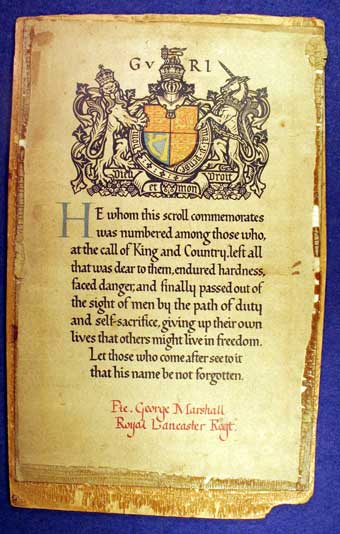 GvRI
Dieu et mon Droit
HE whom this scroll commemorates
was numbered among those who,
at the call of King and Country, left all
that was dear to them, endured hardness,
faced danger, and finally passed out of
the sight of men by the path of duty
and self-sacrifice, giving up their own
lives that others might live in freedom.
Let those who come after see to it
that his name be not forgotten.
Pte. George Marshall
Royal Lancaster Regt.